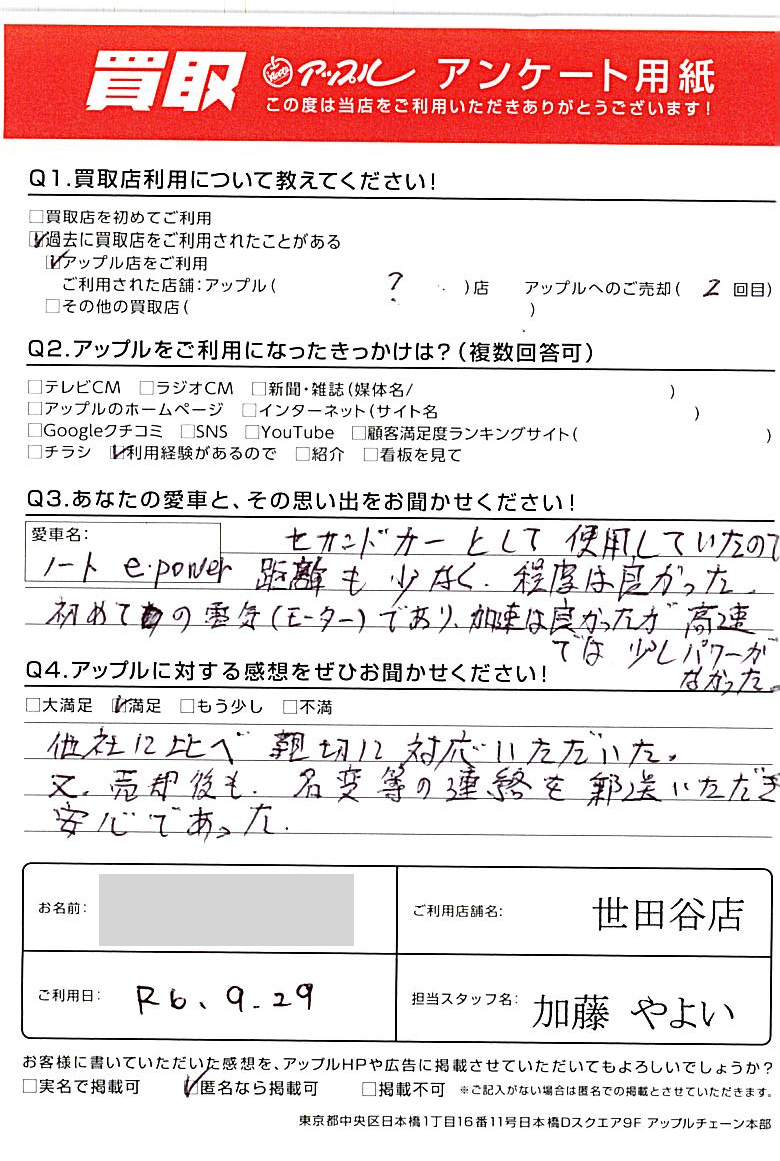 買取 アップル アンケート用紙
この度は当店をご利用いただきありがとうございます！
Q1.買取店利用について教えてください！
□買取店を初めてご利用
☑過去に買取店をご利用されたことがある
☑アップル店をご利用
ご利用された店舗：アップル（ ？ ）店 アップルへのご売却（ 2 回目）
□その他の買取店（ ）
Q2.アップルをご利用になったきっかけは？（複数回答可）
□テレビCM □ラジオCM □新聞・雑誌（媒体名/ ）
□アップルのホームページ □インターネット（サイト名 ）
□Googleクチコミ □SNS □YouTube □顧客満足度ランキングサイト（ ）
□チラシ ☑利用経験があるので □紹介 □看板を見て
Q3.あなたの愛車と、その思い出をお聞かせください！
愛車名：
ノート e-power
セカンドカーとして使用していたので
距離も少なく、程度は良かった。
初めての電気（モーター）であり、加速は良かったが高速
では少しパワーが
なかった。
Q4.アップルに対する感想をぜひお聞かせください！
□大満足 ☑満足 □もう少し □不満
他社に比べ親切に対応いただいた。
又、売却後も、名変等の連絡を郵送いただき
安心であった。
お名前：
ご利用店舗名： 世田谷店
ご利用日： R6、9.29
担当スタッフ名： 加藤 やよい
お客様に書いていただいた感想を、アップルHPや広告に掲載させていただいてもよろしいでしょうか？
□実名で掲載可 ☑匿名なら掲載可 □掲載不可 ※ご記入がない場合は匿名での掲載とさせていただきます。
東京都中央区日本橋1丁目16番11号日本橋Dスクエア9F アップルチェーン本部